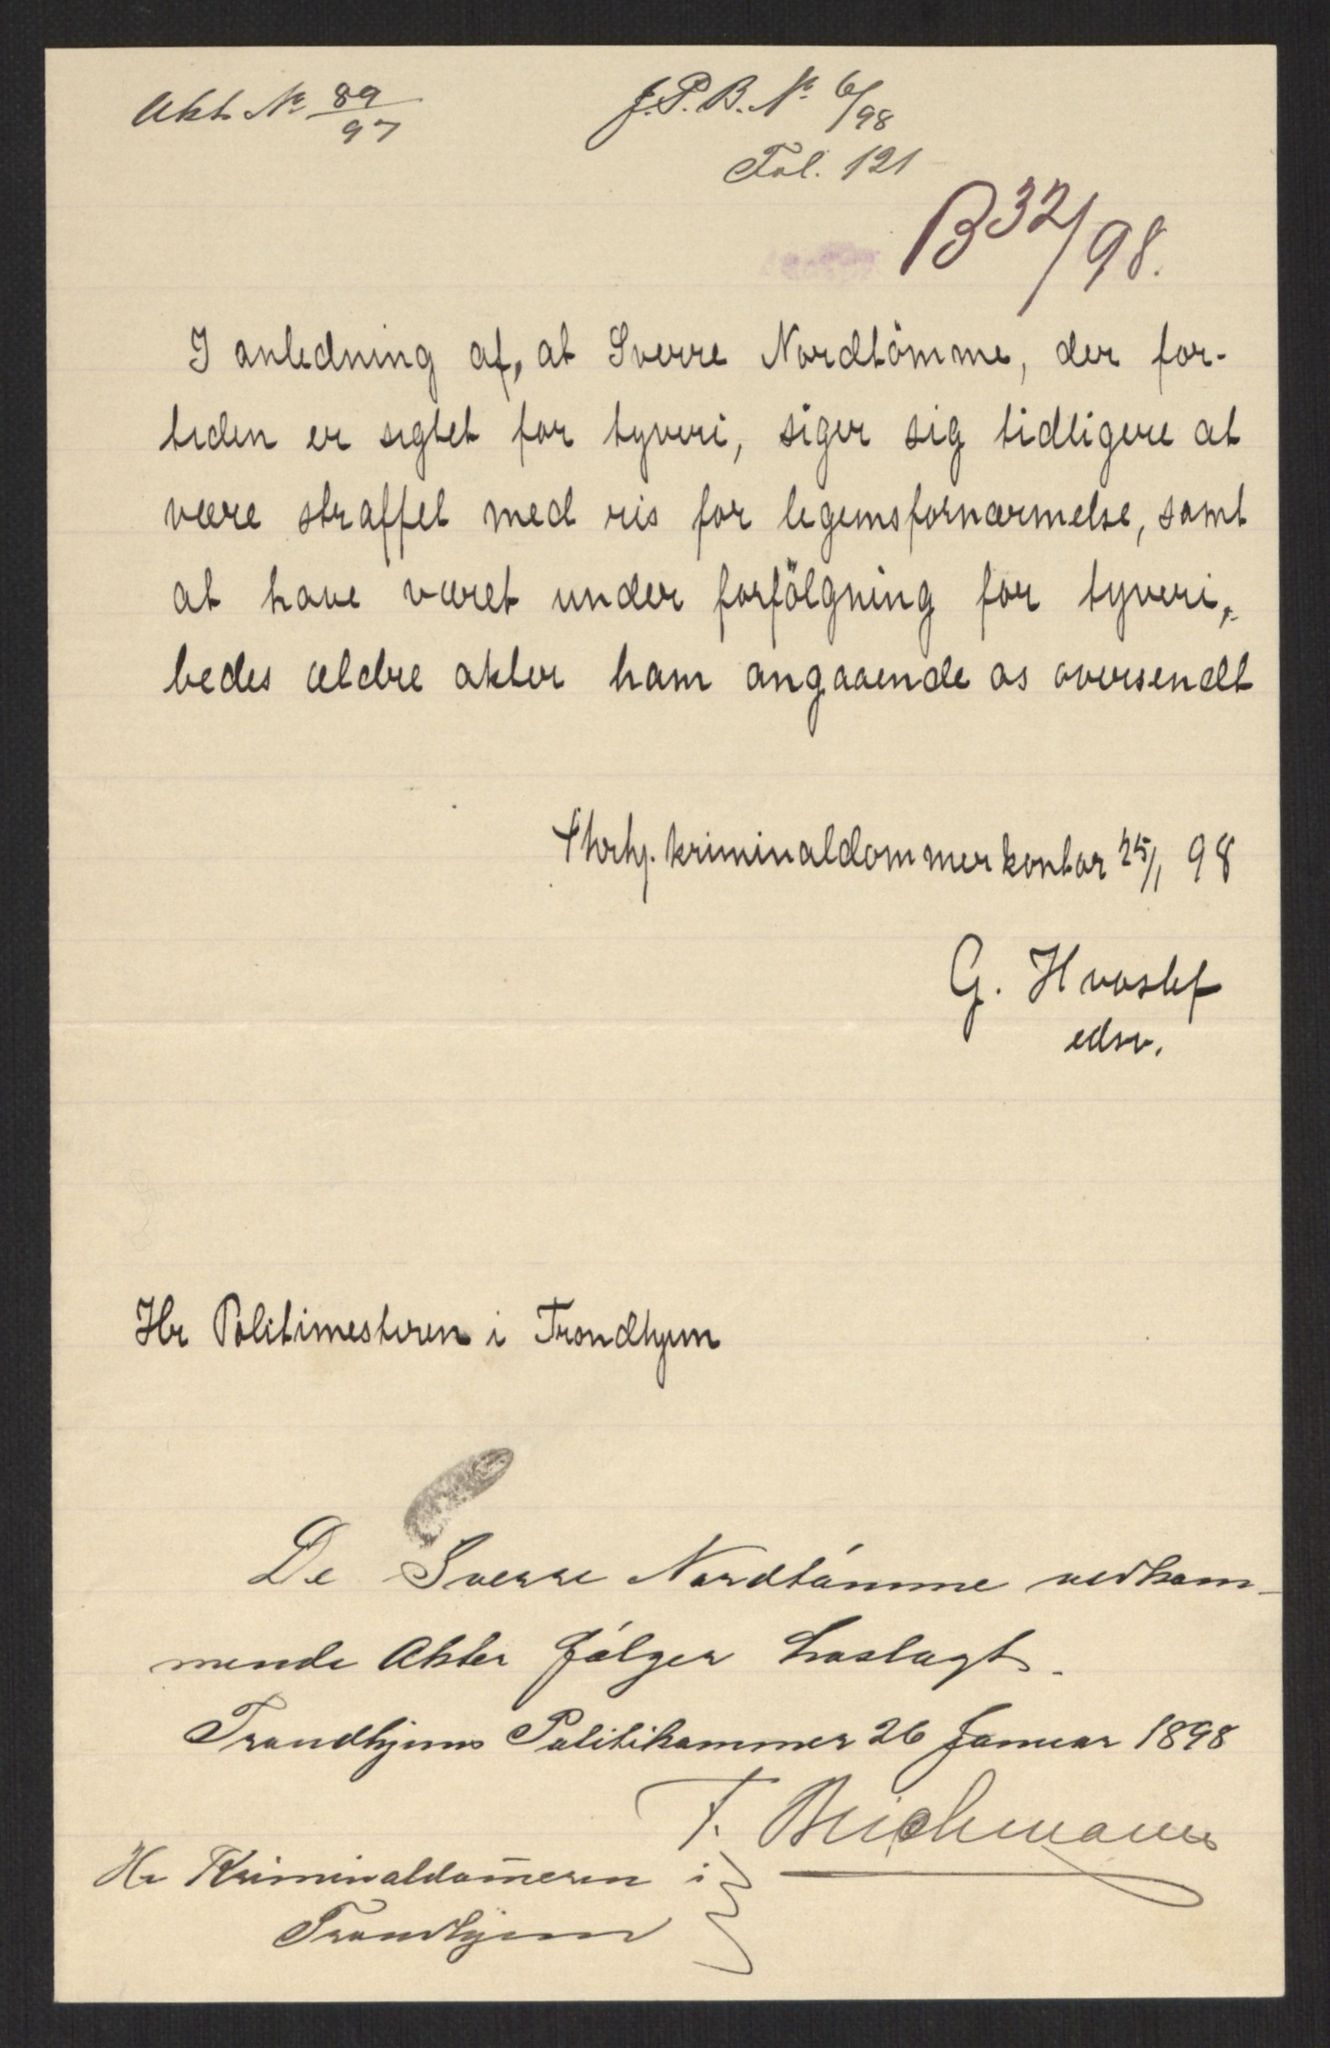 Akt No 89/97
J.P.B. No 6/98
Fol. 121
B 32/98.
I anledning af, at Sverre Nordtömme, der for-
tiden er sigtet for tyveri, siger sig tidligere at
være straffet med ris for legemsfornærmelse, samt
at have været under forfölgning for tyveri,
bedes ældre akter ham angaaende os oversendt
Thrhj. kriminaldommerkontor 25/1 98
G. Hvoslef
edsv.
Hr Politimesteren i Trondhjem
De Sverre Nordtömme vedkom-
mende Akter fölger hoslagt.
Trondhjems Politikammer 26 Januar 1898
T. Buichmann
Hr Kriminaldom̄eren i
Trondhjem